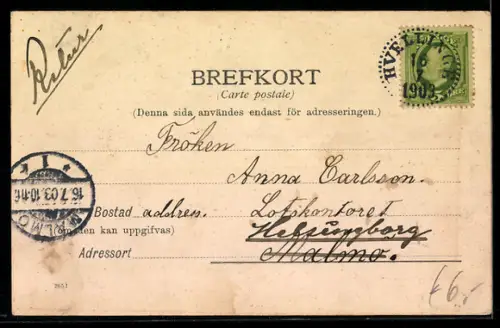 Retur
HVELLINGE
1903
BREFKORT
(Carte postale)
(Denna sida användes endast för adresseringen.)
Fröken
Anna Carlsson.
Bostad address. Lotskontoret
(om den kan uppgifvas) Helsingborg
Adressort Malmö.
1
16.7.03.10
MALMÖ
7651
€6,-